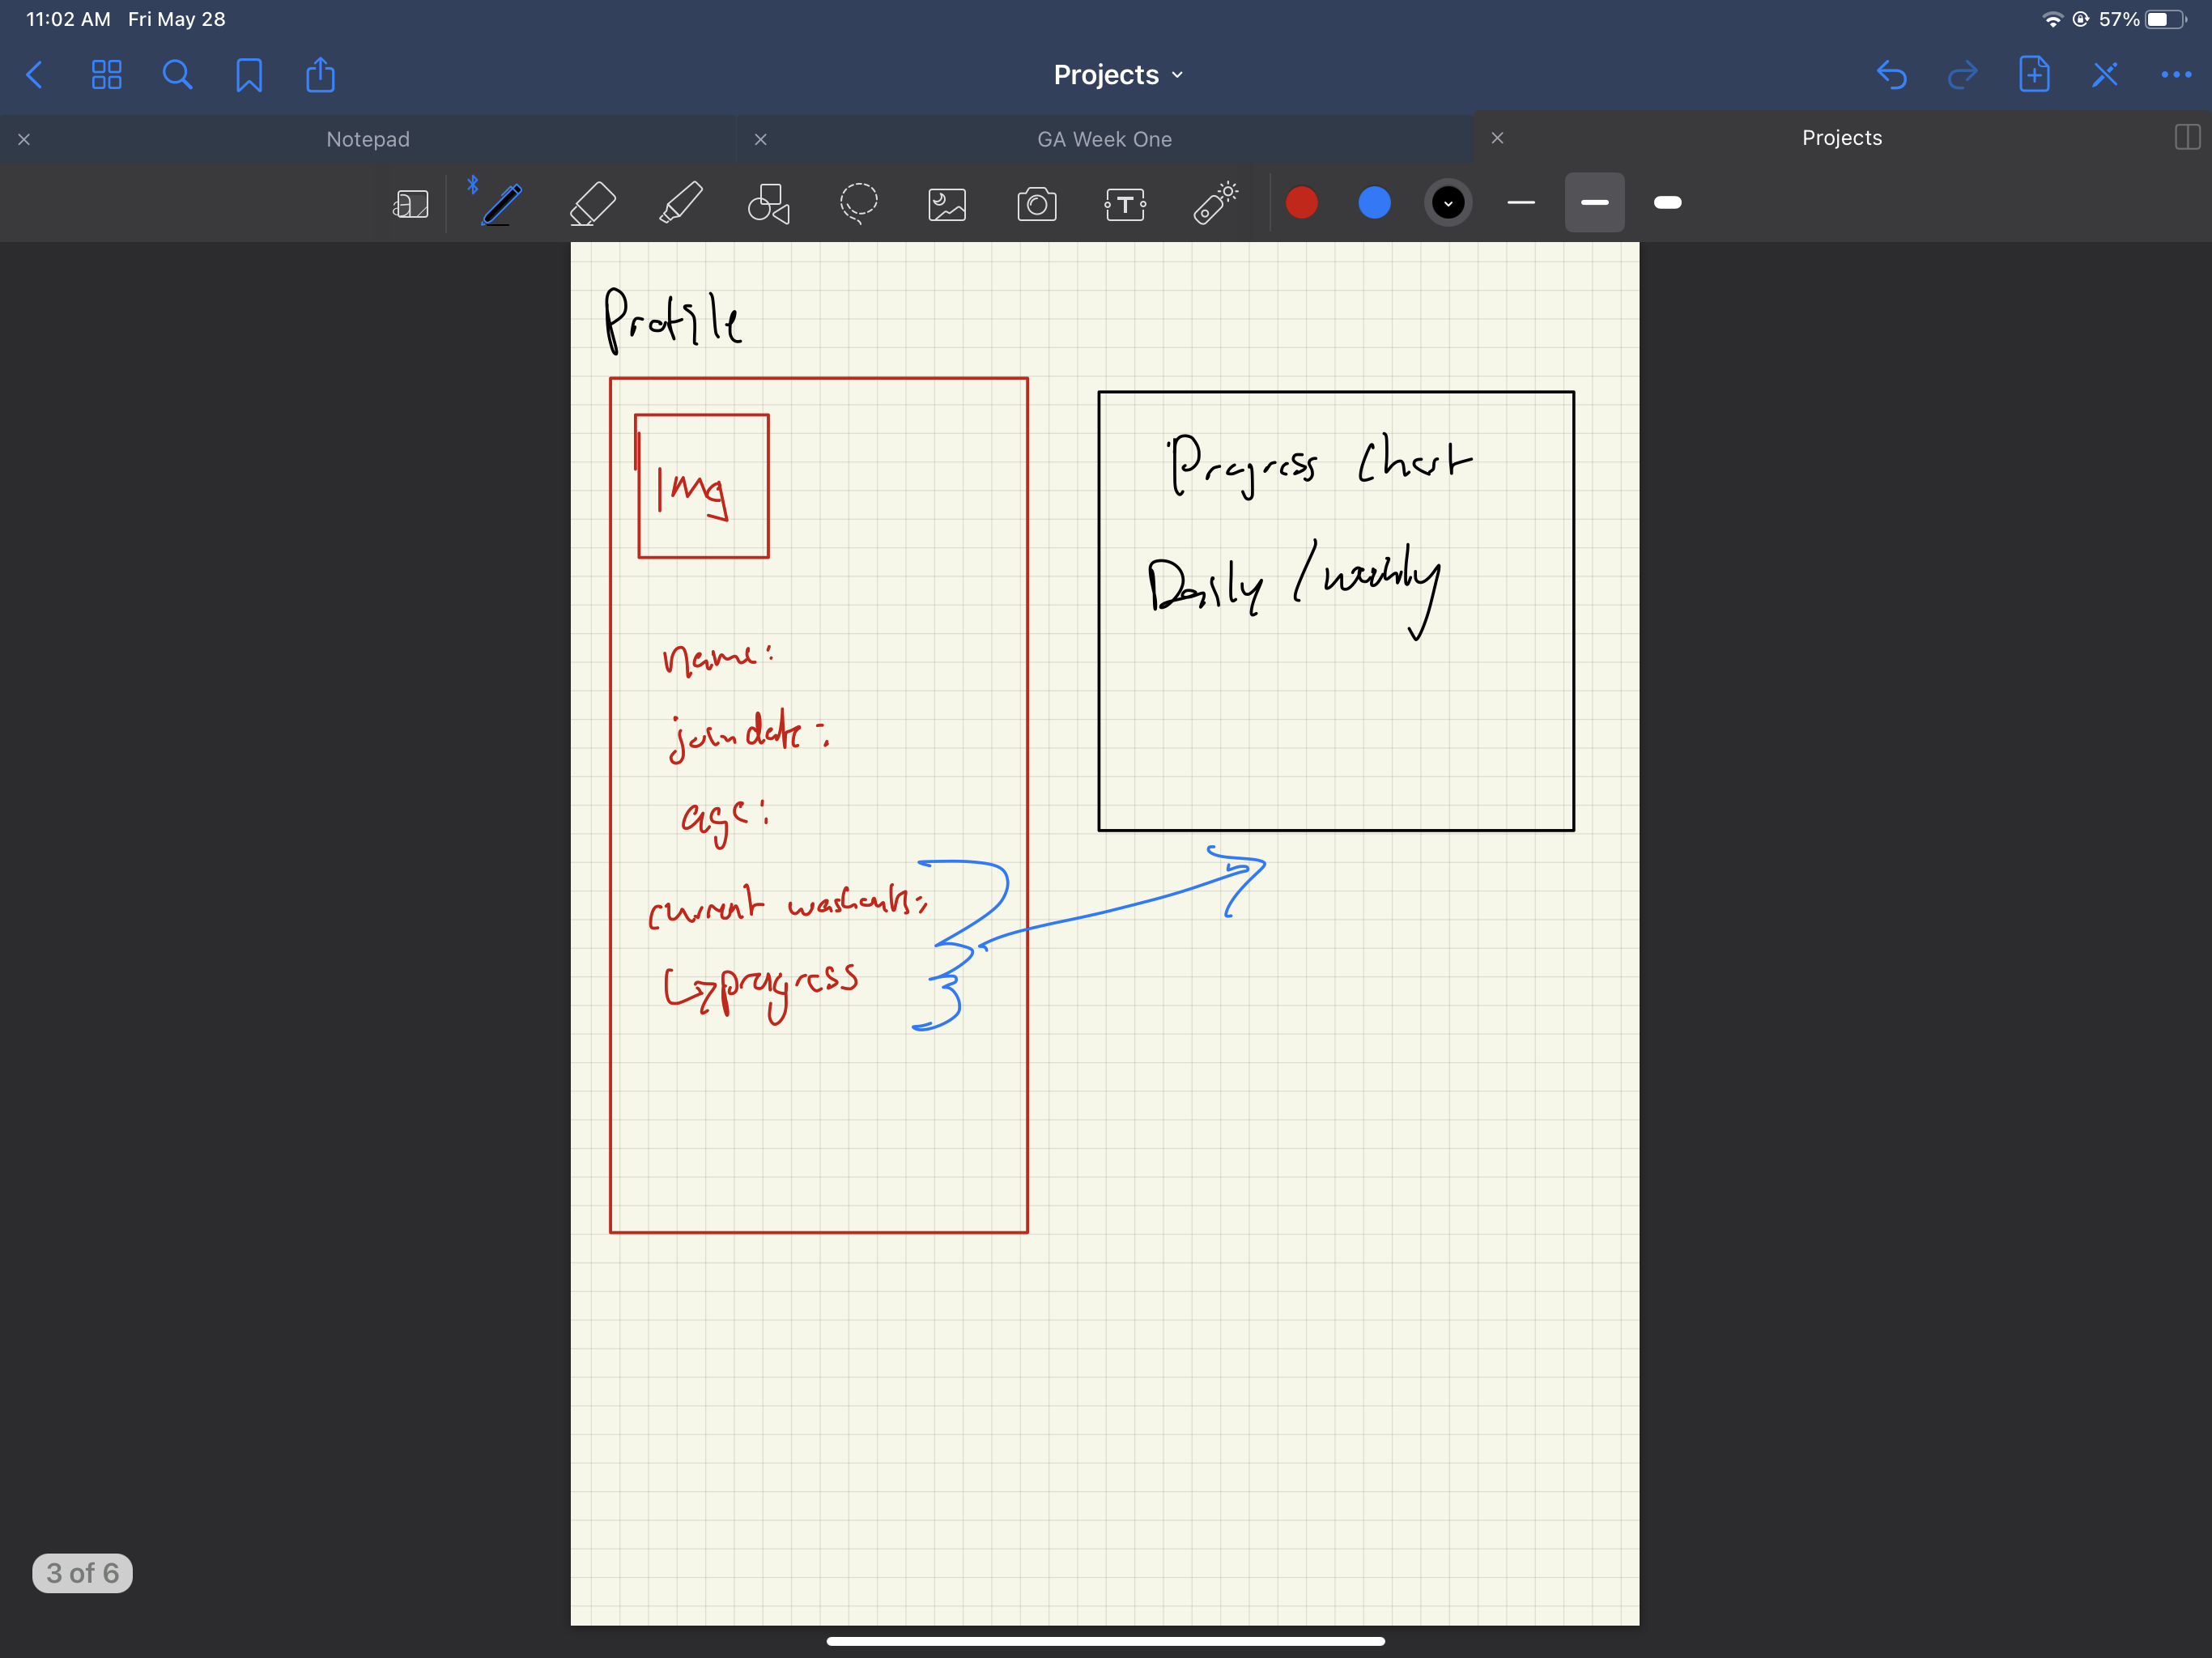 11:02 AM Fri May 28
57%
Projects
Notepad
GA Week One
Projects
Profile
Img
name:
join date:
age:
current workouts:
↳ progress
Progress Chart
Daily / weekly
3 of 6